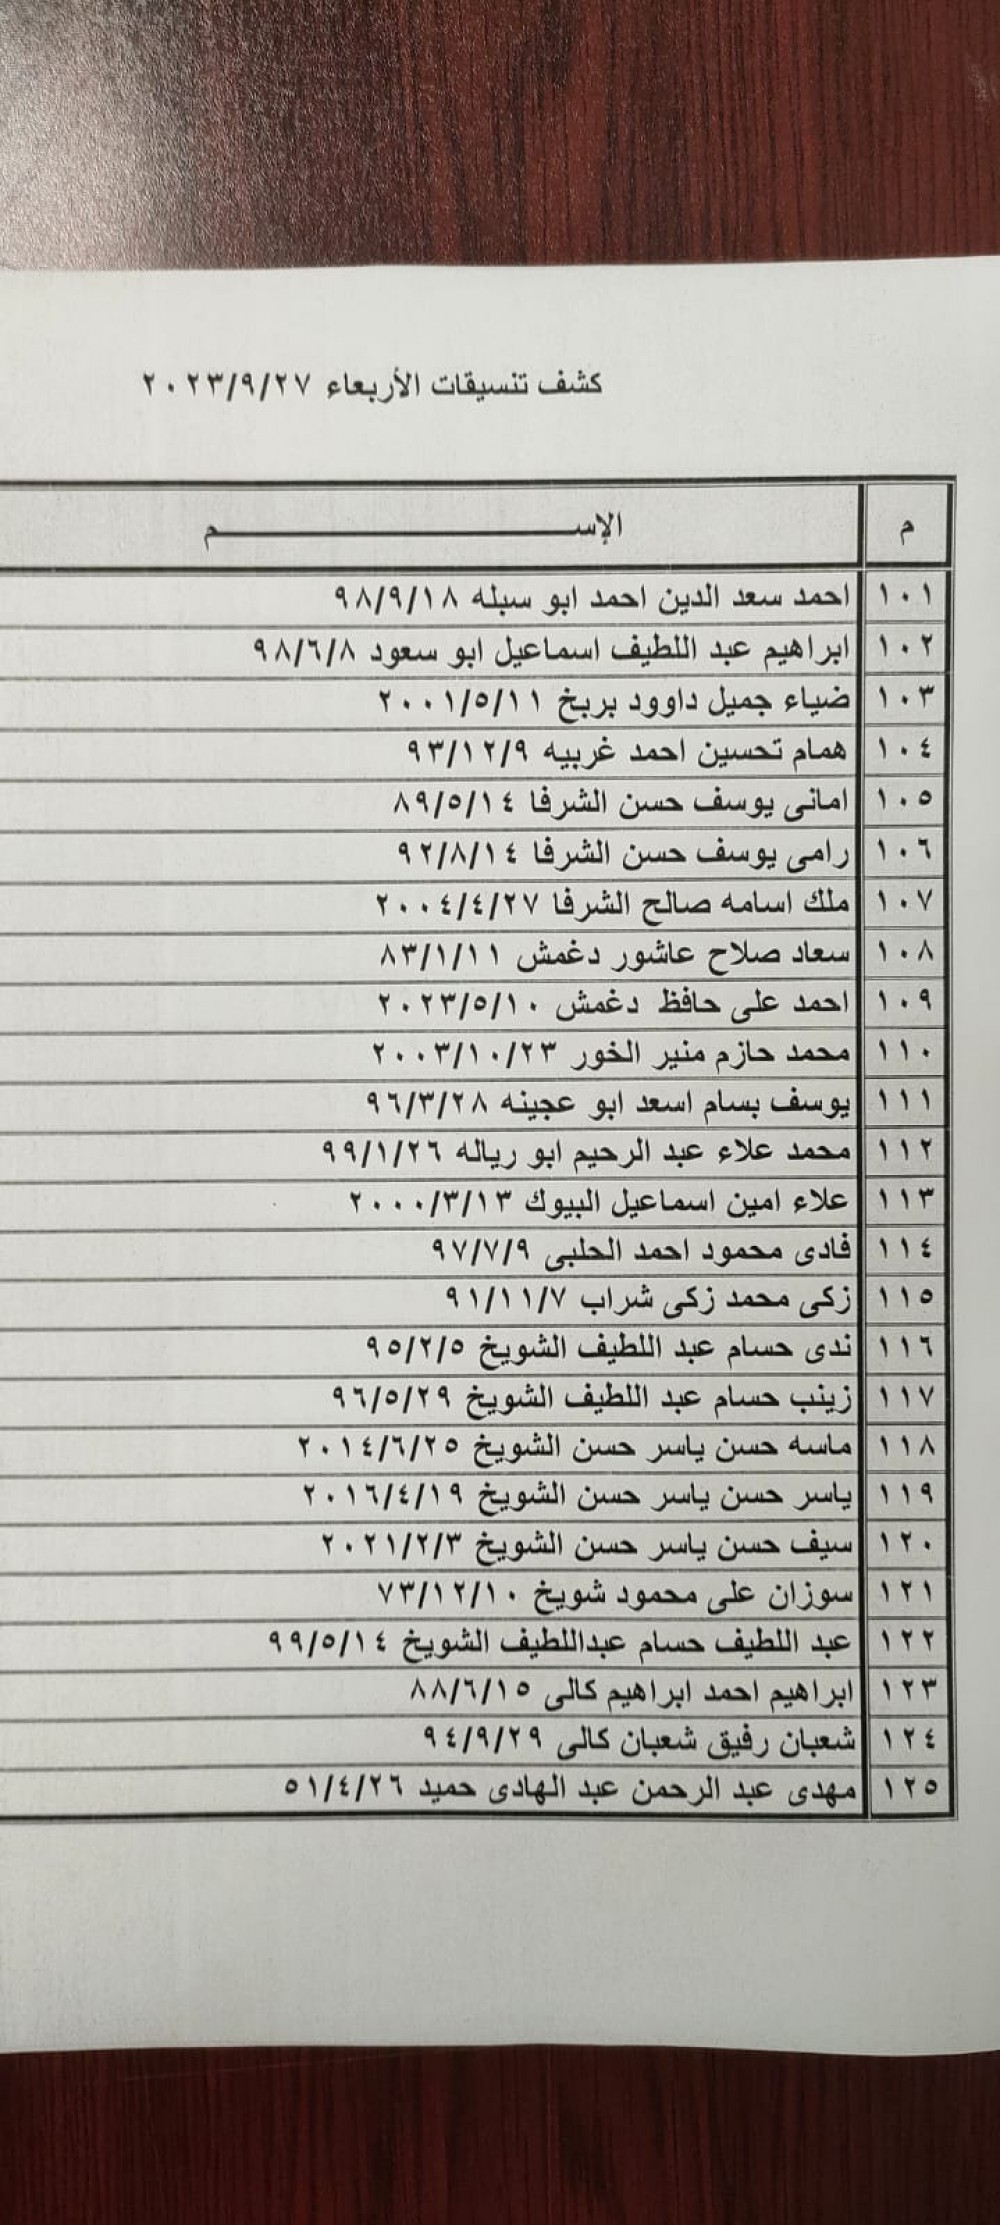 كشف تنسيقات الأربعاء ٢٠٢٣/٩/٢٧
م الإســـــــــــــم
١٠١ احمد سعد الدين احمد ابو سبله ٩٨/٩/١٨
١٠٢ ابراهيم عبد اللطيف اسماعيل ابو سعود ٩٨/٦/٨
١٠٣ ضياء جميل داوود بربخ ٢٠٠١/٥/١١
١٠٤ همام تحسين احمد غربيه ٩٣/١٢/٩
١٠٥ امانى يوسف حسن الشرفا ٨٩/٥/١٤
١٠٦ رامى يوسف حسن الشرفا ٩٢/٨/١٤
١٠٧ ملك اسامه صالح الشرفا ٢٠٠٤/٤/٢٧
١٠٨ سعاد صلاح عاشور دغمش ٨٣/١/١١
١٠٩ احمد على حافظ دغمش ٢٠٢٣/٥/١٠
١١٠ محمد حازم منير الخور ٢٠٠٣/١٠/٢٣
١١١ يوسف بسام اسعد ابو عجينه ٩٦/٣/٢٨
١١٢ محمد علاء عبد الرحيم ابو رياله ٩٩/١/٢٦
١١٣ علاء امين اسماعيل البيوك ٢٠٠٠/٣/١٣
١١٤ فادى محمود احمد الحلبى ٩٧/٧/٩
١١٥ زكى محمد زكى شراب ٩١/١١/٧
١١٦ ندى حسام عبد اللطيف الشويخ ٩٥/٢/٥
١١٧ زينب حسام عبد اللطيف الشويخ ٩٦/٥/٢٩
١١٨ ماسه حسن ياسر حسن الشويخ ٢٠١٤/٦/٢٥
١١٩ ياسر حسن ياسر حسن الشويخ ٢٠١٦/٤/١٩
١٢٠ سيف حسن ياسر حسن الشويخ ٢٠٢١/٢/٣
١٢١ سوزان على محمود شويخ ٧٣/١٢/١٠
١٢٢ عبد اللطيف حسام عبداللطيف الشويخ ٩٩/٥/١٤
١٢٣ ابراهيم احمد ابراهيم كالى ٨٨/٦/١٥
١٢٤ شعبان رفيق شعبان كالى ٩٤/٩/٢٩
١٢٥ مهدى عبد الرحمن عبد الهادى حميد ٥١/٤/٢٦